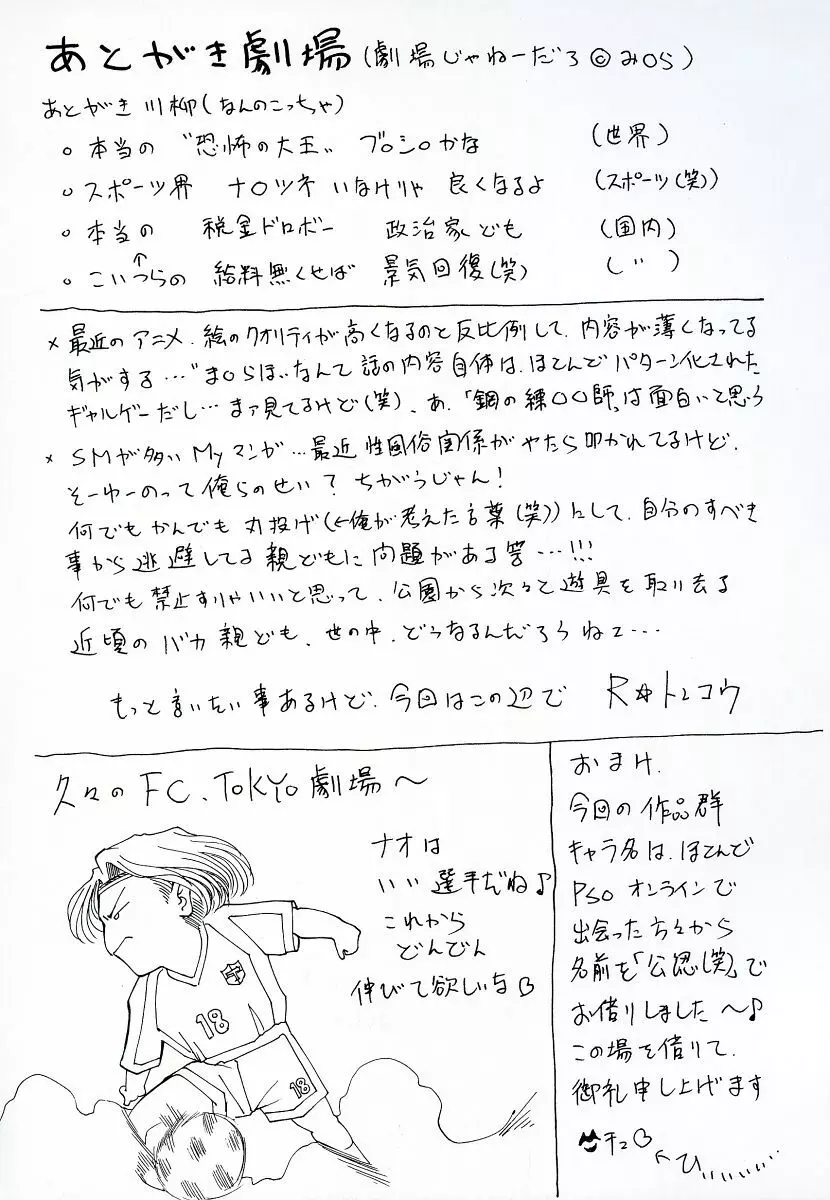 あとがき劇場(劇場じゃねーだろ©みOら)
あとがき 川柳(なんのこっちゃ)
○ 本当の "恐怖の大王" ブOシOかな (世界)
○ スポーツ界 ナOツネ いなけりゃ 良くなるよ (スポーツ(笑))
○ 本当の 税金ドロボー 政治家ども (国内)
↑
○ こいつらの 給料無くせば 景気回復(笑) (〃)
× 最近のアニメ、絵のクオリティが高くなるのと反比例して、内容が薄くなってる
気がする…"まOらほ"なんて話の内容自体は、ほとんどパターン化された
ギャルゲーだし…まァ見てるけど(笑)、あ、「鋼の練○○師」は面白いと思う
× SMが多いMyマンガ…最近性風俗関係がやたら叩かれてるけど、
そーゆーのって俺らのせい?ちがうじゃん!
何でもかんでも丸投げ(←俺が考えた言葉(笑))にして、自分のすべき
事から逃避してる親どもに問題がある筈…!!!
何でも禁止すりゃいいと思って、公園から次々と遊具を取り去る
近頃のバカ親ども、世の中、どうなるんだろうねェ…
もっと言いたい事あるけど、今回はこの辺で R☆トレコウ
久々のFC、TOKYO劇場〜
ナオは
いい選手だね♪
これから
どんどん
伸びて欲しいな
18
18
おまけ、
今回の作品群
キャラ名は、ほとんど
PSOオンラインで
出会った方々から
名前を「公認(笑)」で
お借りしました〜♪
この場を借りて、
御礼申し上げます